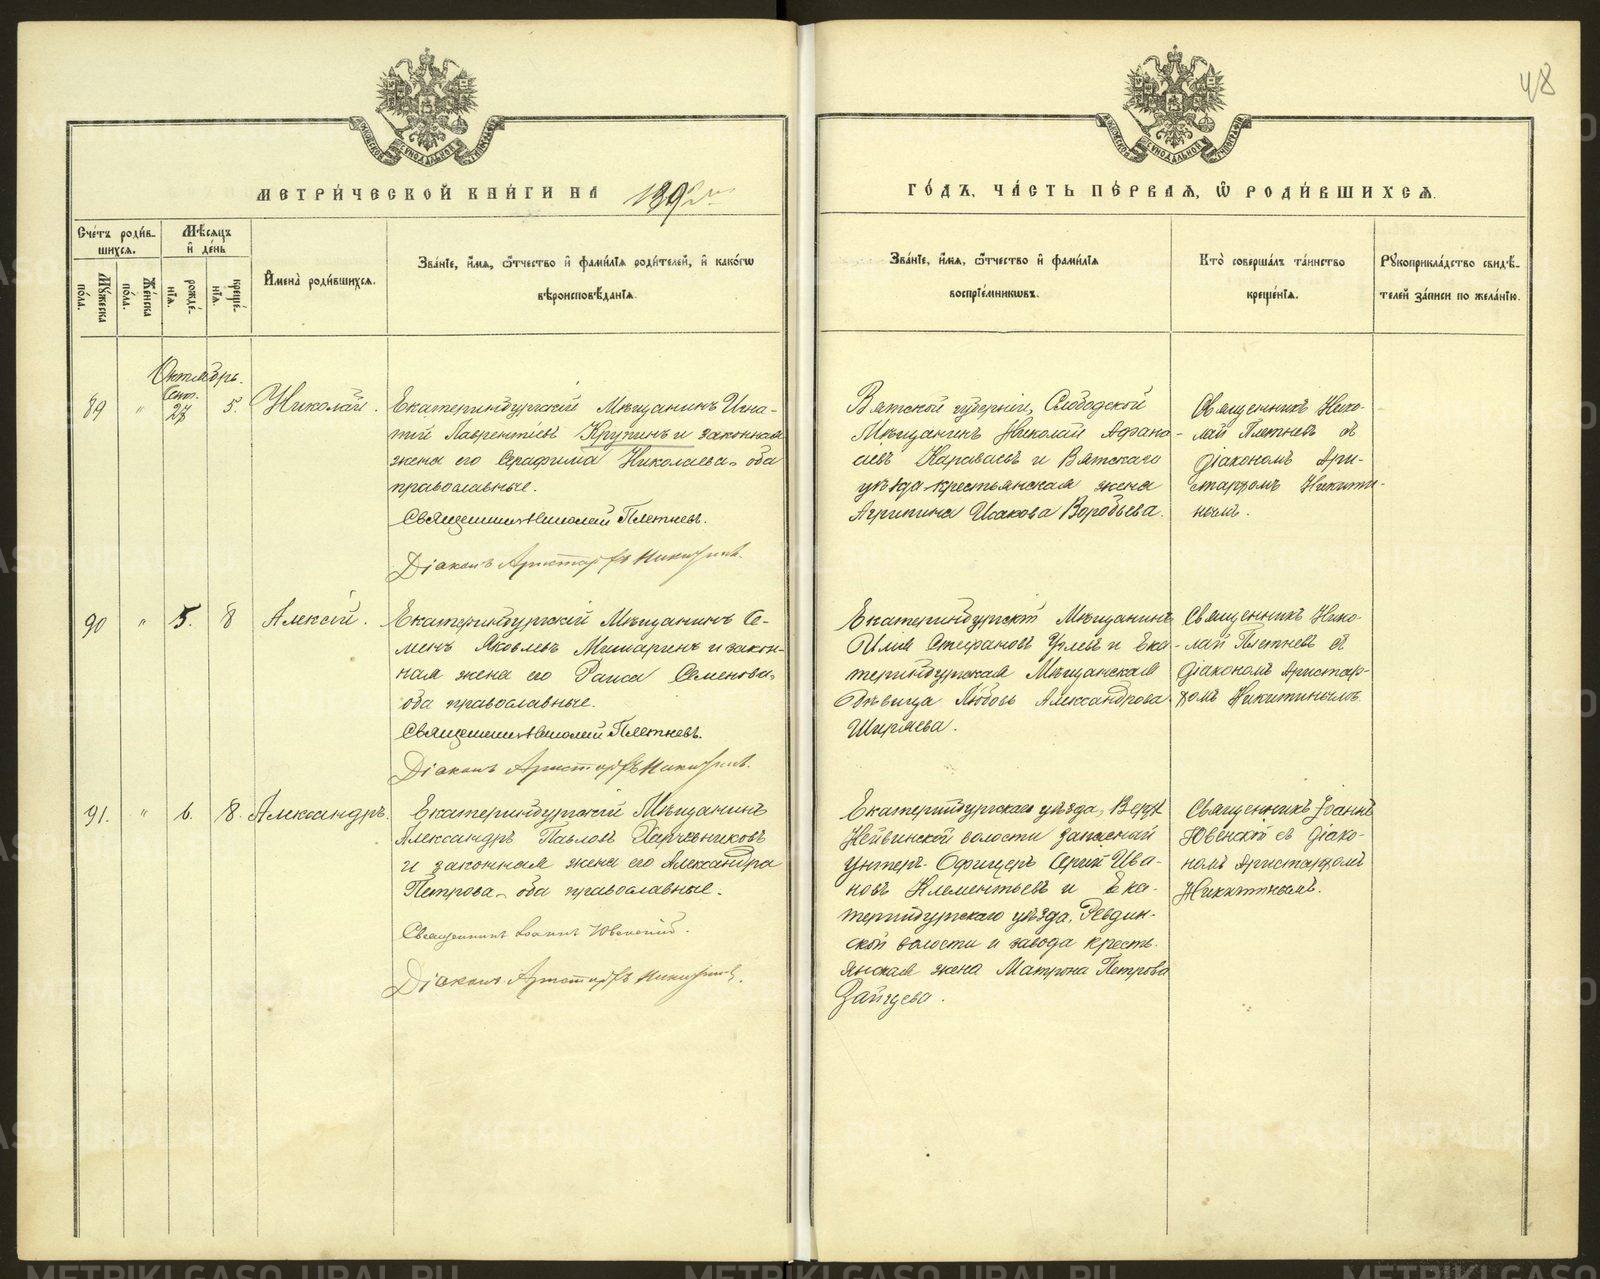 48
МЕТРИЧЕСКОЙ КНИГИ НА 1892
ГОДЪ, ЧАСТЬ ПЕРВАЯ, Ѡ РОДИВШИХСЯ.
Счетъ родив-
шихся.
Мужеска пола.
Женска пола.
Мѣсяцъ и день
рождения.
крещения.
Имена родившихся.
Званіе, имя, ѿчество и фамилія родителей, и какогѡ
вѣроисповѣданія.
Званіе, имя, ѿчество и фамилія
воспріемникѡвъ.
Кто совершалъ таинство
крещенія.
Рукоприкладство свидѣ-
телей записи по желанію.
Октябрь.
89 " Сент. 27 5. Николай.
Екатеринбургскій Мѣщанинъ Игна-
тій Лаврентьевъ Крупинъ и законная
жена его Серафима Николаева, оба
православные.
Священникъ Николай Плетневъ.
Діаконъ Аристархъ Никитинъ.
Вятской губерніи, Слободской
Мѣщанинъ Николай Афана-
сіевъ Караваевъ и Вятскаго
уѣзда крестьянская жена
Агрипина Исакова Воробьева.
Священникъ Нико-
лай Плетневъ съ
діакономъ Ари-
стархомъ Никити-
нымъ.
90 " 5. 8 Алексѣй.
Екатеринбургскій Мѣщанинъ Се-
менъ Яковлевъ Мишаринъ и закон-
ная жена его Раиса Семенова,
оба православные.
Священникъ Николай Плетневъ.
Діаконъ Аристархъ Никитинъ.
Екатеринбургскій Мѣщанинъ
Илія Стефановъ и Ека-
теринбургская Мѣщанская
дѣвица Любовь Александрова
Ширяева.
Священникъ Нико-
лай Плетневъ съ
діакономъ Аристар-
хомъ Никитинымъ.
91. " 6. 8. Александръ.
Екатеринбургскій Мѣщанинъ
Александръ Павловъ Харчевниковъ
и законная жена его Александра
Петрова, оба православные.
Священникъ Іоаннъ Ювенскій.
Діаконъ Аристархъ Никитинъ.
Екатеринбургскаго уѣзда, Верх-
Нейвинской волости запасный
Унтеръ-Офицеръ Ива-
новъ Клементьевъ и Ека-
теринбургскаго уѣзда, Ревдин-
ской волости и завода кресть-
янская жена Матрона Петрова
Зайцева.
Священникъ Іоаннъ
Ювенскій съ діако-
номъ Аристархомъ
Никитинымъ.
METRIKI.GASO-URAL.RU